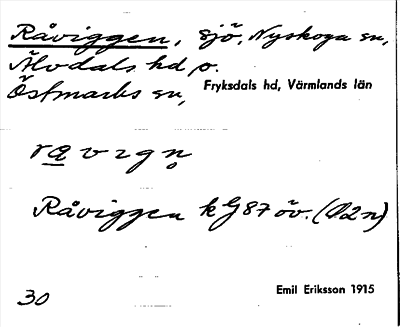 Råviggen, sjö, Nyskoga sn,
Älvdals hd o.
Östmarks sn, Fryksdals hd, Värmlands län
ravɪgn̥
Råviggen k G87 öv. (Ö2n)
30 Emil Eriksson 1915